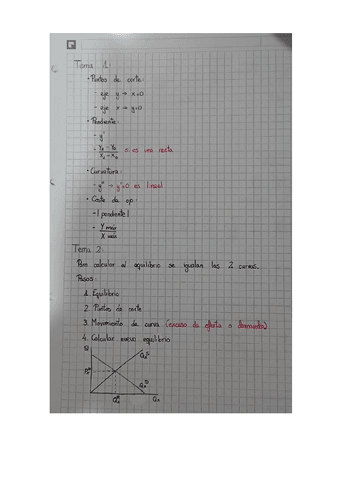 Tema 1:
· Puntos de corte:
- eje y → x=0
- eje x → y=0
· Pendiente:
- y'
- Y₁ - Y₀ / X₁ - X₀ si es una recta
· Curvatura:
- y'' → y''=0 es lineal
· Coste de op:
- |pendiente|
- Y máx / X máx
Tema 2:
Para calcular el equilibrio se igualan las 2 curvas.
Pasos:
1. Equilibrio
2. Puntos de corte
3. Movimiento de curva (exceso de oferta o demanda)
4. Calcular nuevo equilibrio